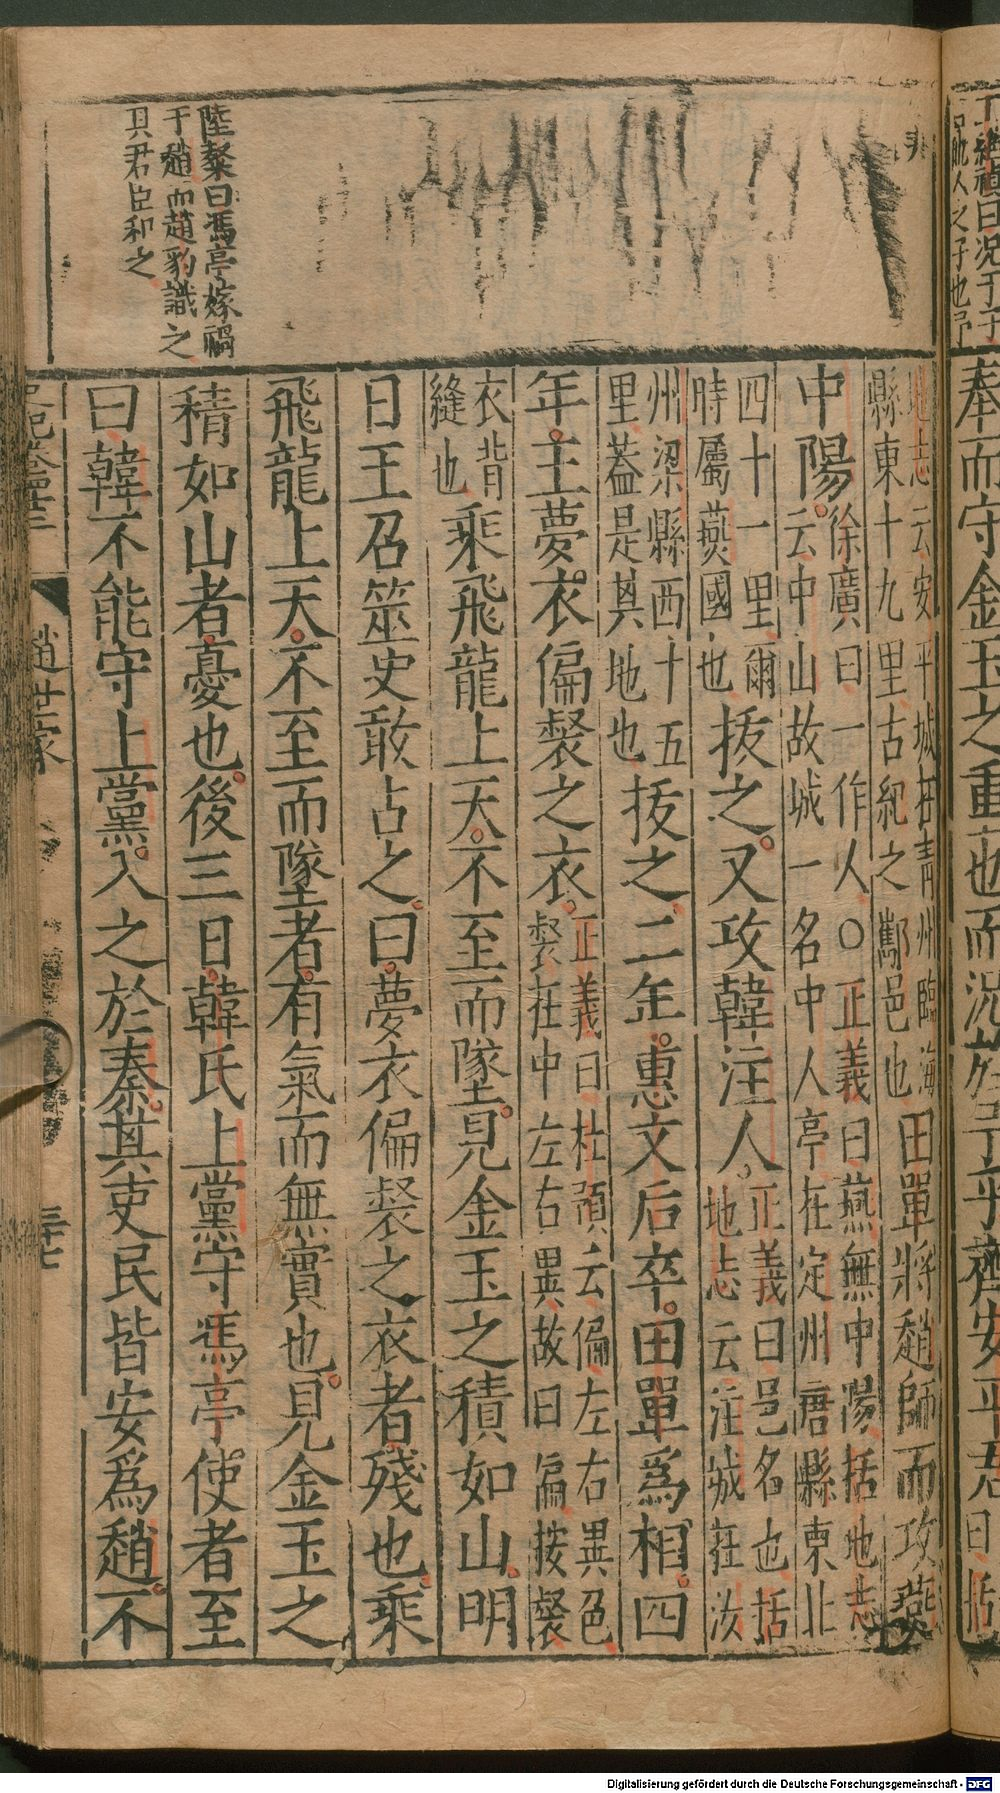 丁
龍人之子也
奉而守金玉之重也而況於予乎齊安平君
地志云安平城在青州臨淄
縣東十九里古紀之酅邑也
田單將趙師而攻燕
中陽
徐廣曰一作人○正義曰燕無中陽括地志
云中山故城一名中人亭在定州唐縣東北
四十一里爾
時屬燕國也
拔之又攻韓注人
正義曰邑名也括
地志云注城在汝
州梁縣西十五
里蓋是其地也
拔之二年惠文后卒田單爲相四
年王夢衣偏裻之衣
正義曰杜預云偏左右異色
裻在中左右異故曰偏按裻
衣背
縫也
乘飛龍上天不至而墜見金玉之積如山明
日王召筮史敢占之曰夢衣偏裻之衣者殘也乘
飛龍上天不至而墜者有氣而無實也見金玉之
積如山者憂也後三日韓氏上黨守馮亭使者至
曰韓不能守上黨入之於秦其吏民皆安爲趙不
陸粲曰馮亭嫁禍
于趙而趙豹識之
其君臣和之
史記卷四十三
趙世家
三十七
Digitalisierung gefördert durch die Deutsche Forschungsgemeinschaft - DFG